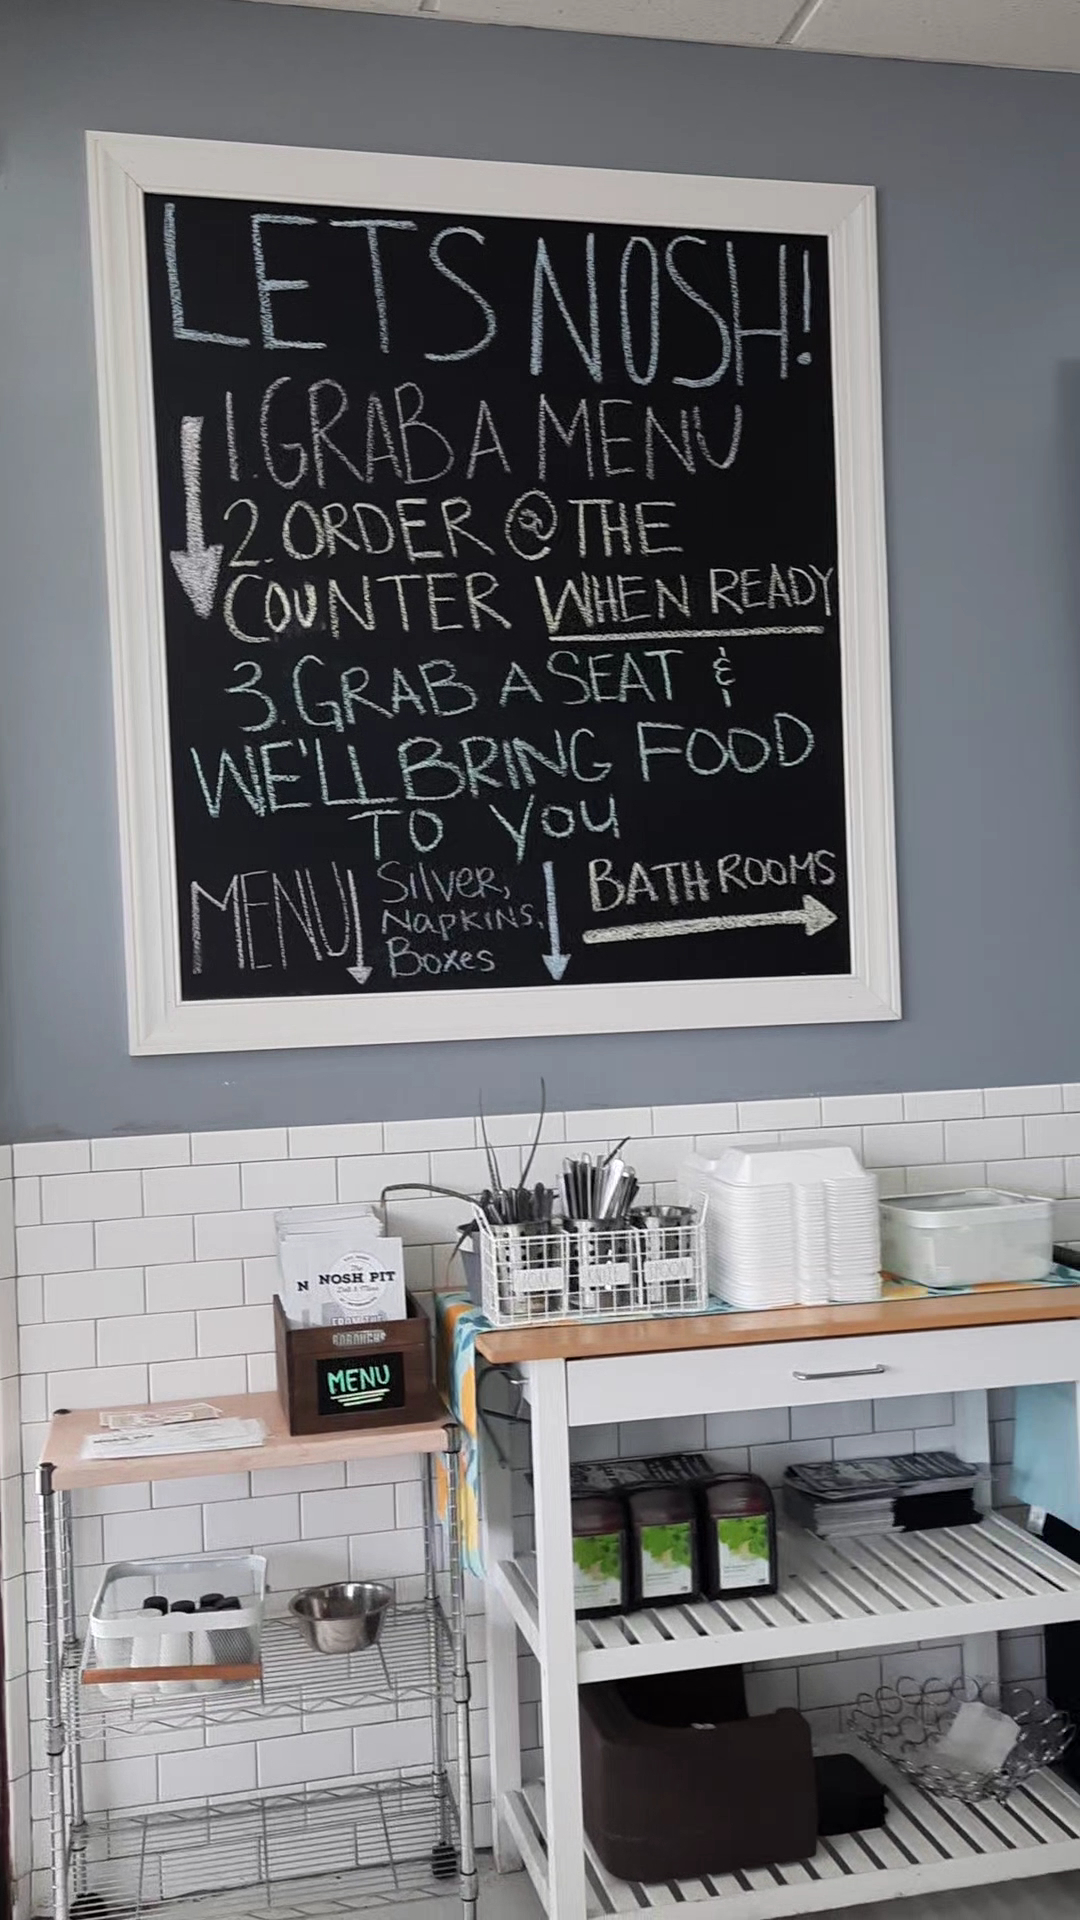 LETS NOSH!
1. GRAB A MENU
2. ORDER @ THE
COUNTER WHEN READY
3. GRAB A SEAT &
WE'LL BRING FOOD
TO YOU
MENU
Silver,
NAPKINS,
Boxes
BATHROOMS
N
The
NOSH PIT
FROM THE
BOROUGHS
MENU
FORK
KNIFE
SPOON